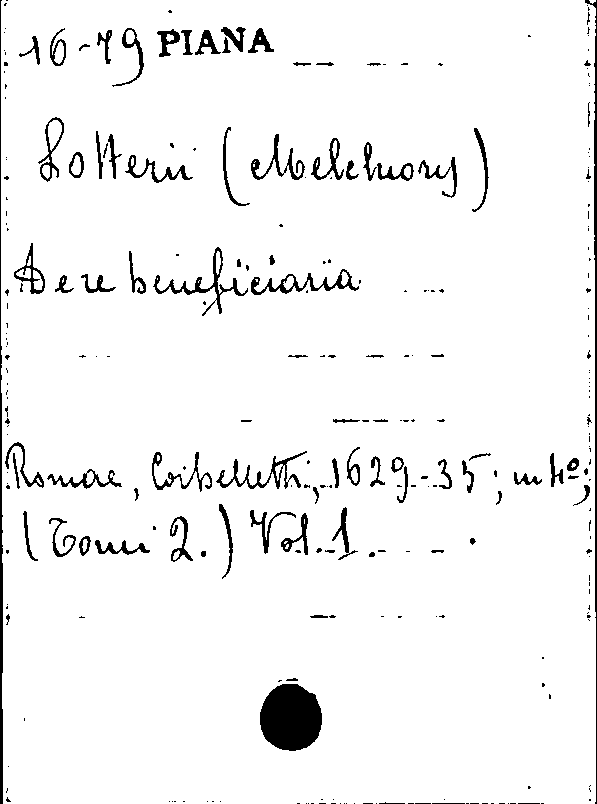 16-79 PIANA
Lotterii (Melchioris)
De re beneficiaria
Romae, Corbelletti, 1629-35; in 4º;
(Tomi 2.) Vol. 1.